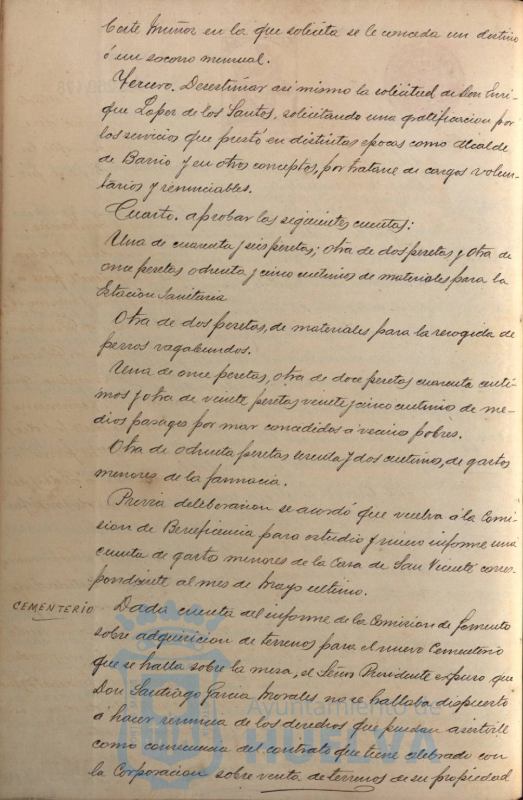 Corte Muñoz en la que solicita se le conceda un destino
ó un socorro mensual.
Tercero. Desestimar asi mismo la solicitud de Don Enri-
que Lopez de los Santos, solicitando una gratificacion por
los servicios que prestó en distintas epocas como Alcalde
de Barrio y en otros conceptos, por tratarse de cargos volun-
tarios y renunciables.
Cuarto. aprobar las seguientes cuentas:
Una de cuarenta y seis pesetas; otra de dos pesetas y otra de
once pesetas ochenta y cinco centimos de materiales para la
Estacion Sanitaria
Otra de dos pesetas, de materiales para la recogida de
perros vagabundos.
Una de once pesetas, otra de doce pesetas cuarenta centi-
mos y otra de veinte pesetas veinte y cinco centimos de me-
dios pasages por mar concedidos á vecinos pobres.
Otra de ochenta pesetas sesenta y dos centimos, de gastos
menores de la farmacia.
Previa deliberacion se acordó que vuelva á la Comi-
sion de Beneficencia para estudio y nuevo informe una
cuenta de gastos menores de la Casa de San Vicente corres-
pondiente al mes de Mayo ultimo.
CEMENTERIO Dada cuenta del informe de la Comision de Fomento
sobre adquisicion de terrenos para el nuevo Cementerio
que se halla sobre la mesa, el Señor Presidente expuso que
Don Santiago Garcia Morales no se hallaba dispuesto
á hacer renuncia de los derechos que puedan asistirle
como consecuencia del contrato que tiene celebrado con
la Corporacion sobre venta de terrenos de su propiedad
Ayuntamiento de
HUELVA